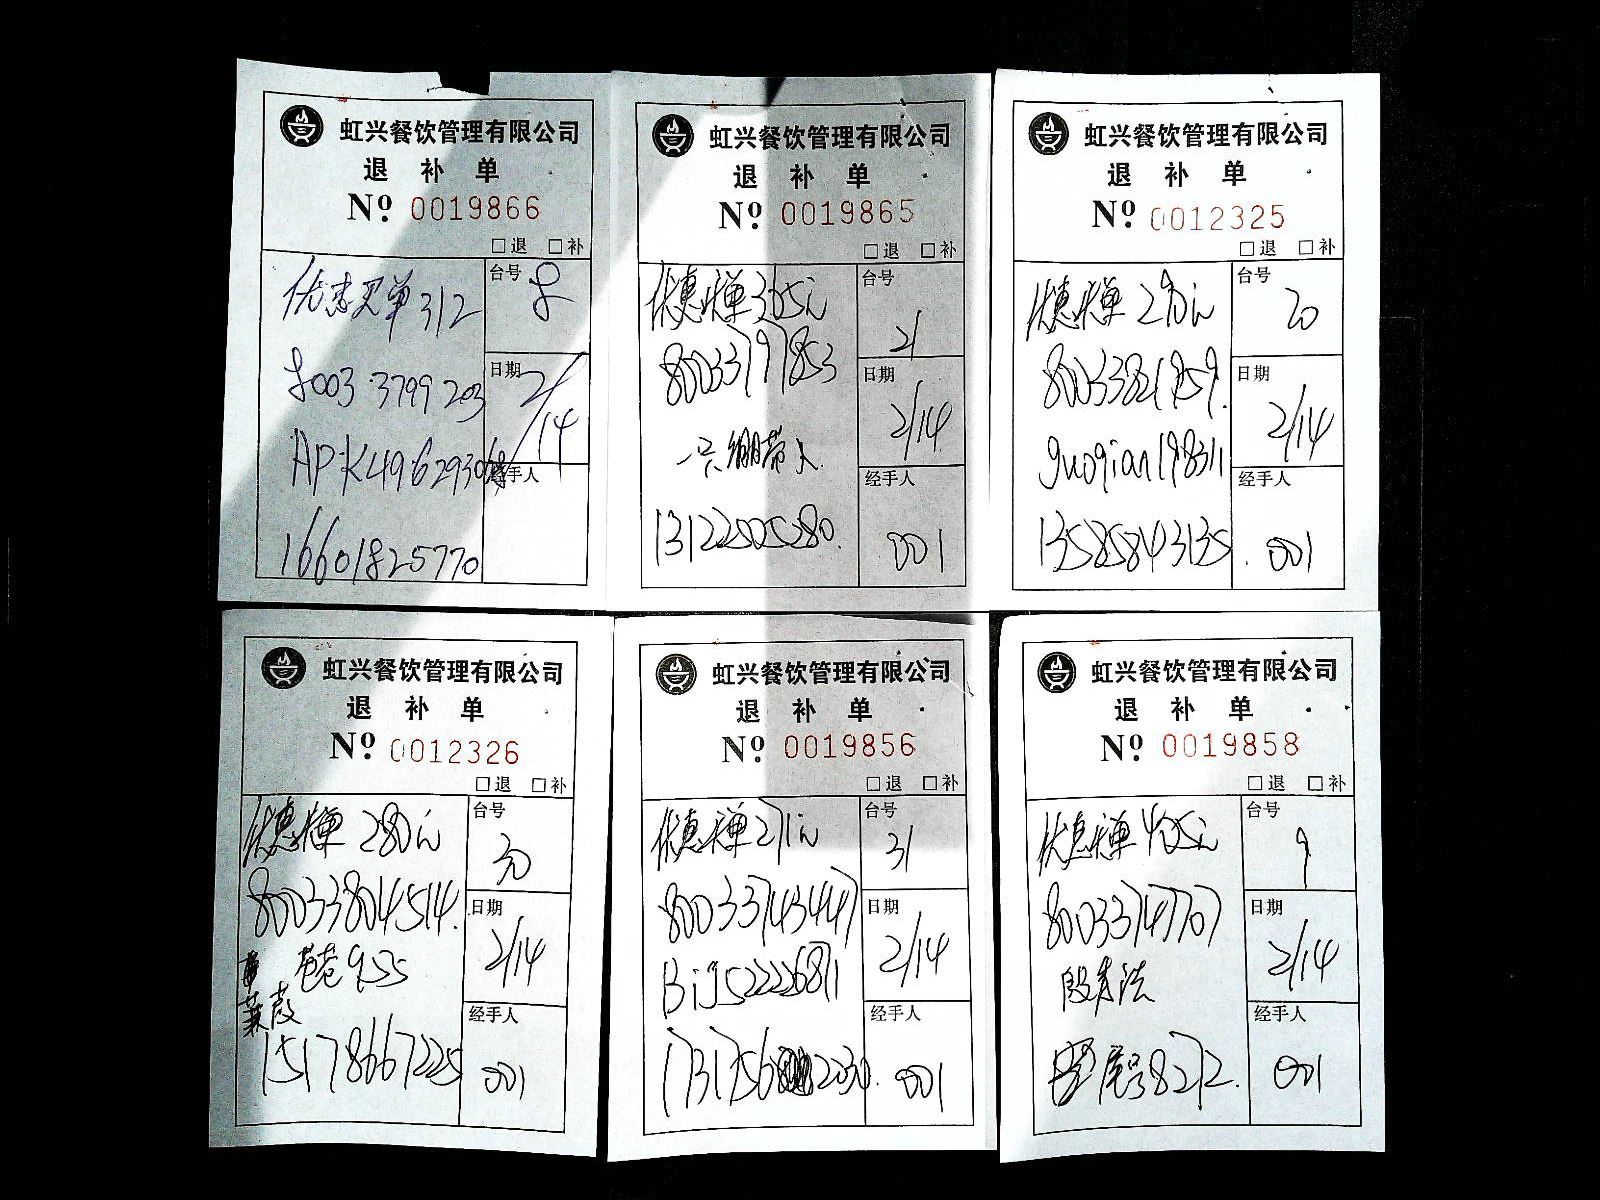 虹兴餐饮管理有限公司
退 补 单
Nº: 0019866
□退 □补
优惠买单312
台号 8
8003 3799 203
日期 2/14
AP:K4962930
经手人
16601825770
虹兴餐饮管理有限公司
退 补 单
Nº: 0019865
□退 □补
优惠买单365元
台号 21
80033797853
日期 2/14
一只绷带人
经手人 001
13122505280.
虹兴餐饮管理有限公司
退 补 单
Nº: 0012325
□退 □补
优惠买单290元
台号 20
80033821959.
日期 2/14
guoqian198311
经手人 001
13585843135.
虹兴餐饮管理有限公司
退 补 单
Nº: 0012326
□退 □补
优惠买单280元
台号 30
80033804514.
日期 2/14
955
经手人 001
15178667225
虹兴餐饮管理有限公司
退 补 单
Nº: 0019856
□退 □补
优惠买单271元
台号 31
80033743447
日期 2/14
Big52226811
经手人 001
1317562030.
虹兴餐饮管理有限公司
退 补 单
Nº: 0019858
□退 □补
优惠买单405元
台号 9
80033747707
日期 2/14
经手人 001
尾号8272.